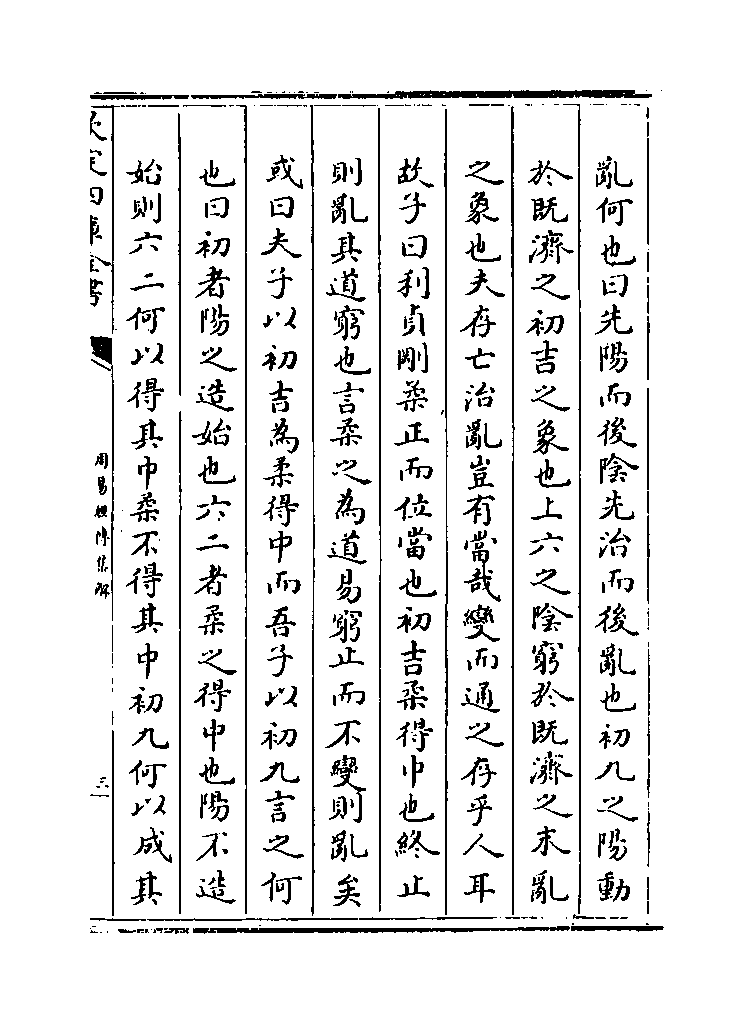 亂何也曰先陽而後隂先治而後亂也初九之陽動
於既濟之初吉之象也上六之隂窮於既濟之末亂
之象也夫存亡治亂豈有當哉變而通之存乎人耳
故子曰利貞剛柔正而位當也初吉柔得中也終止
則亂其道窮也言柔之為道易窮止而不變則亂矣
或曰夫子以初吉為柔得中而吾子以初九言之何
也曰初者陽之造始也六二者柔之得中也陽不造
始則六二何以得其中柔不得其中初九何以成其
欽定四庫全書
周易經傳集解
三